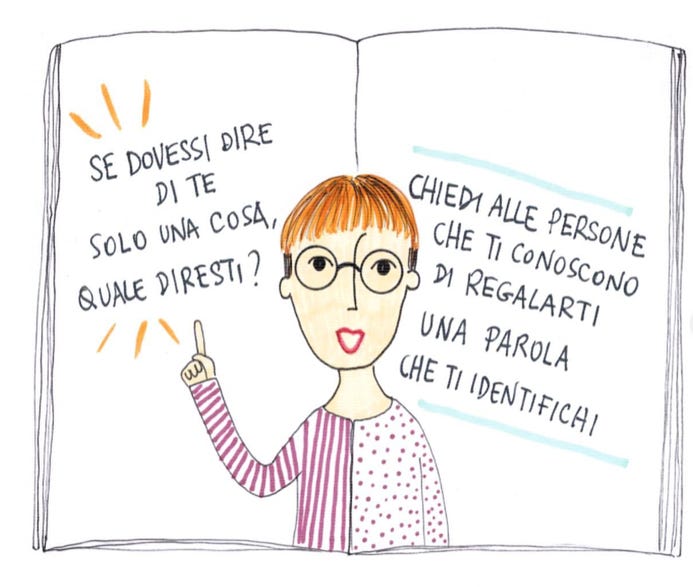 SE DOVESSI DIRE
DI TE
SOLO UNA COSA,
QUALE DIRESTI?
CHIEDI ALLE PERSONE
CHE TI CONOSCONO
DI REGALARTI
UNA PAROLA
CHE TI IDENTIFICHI